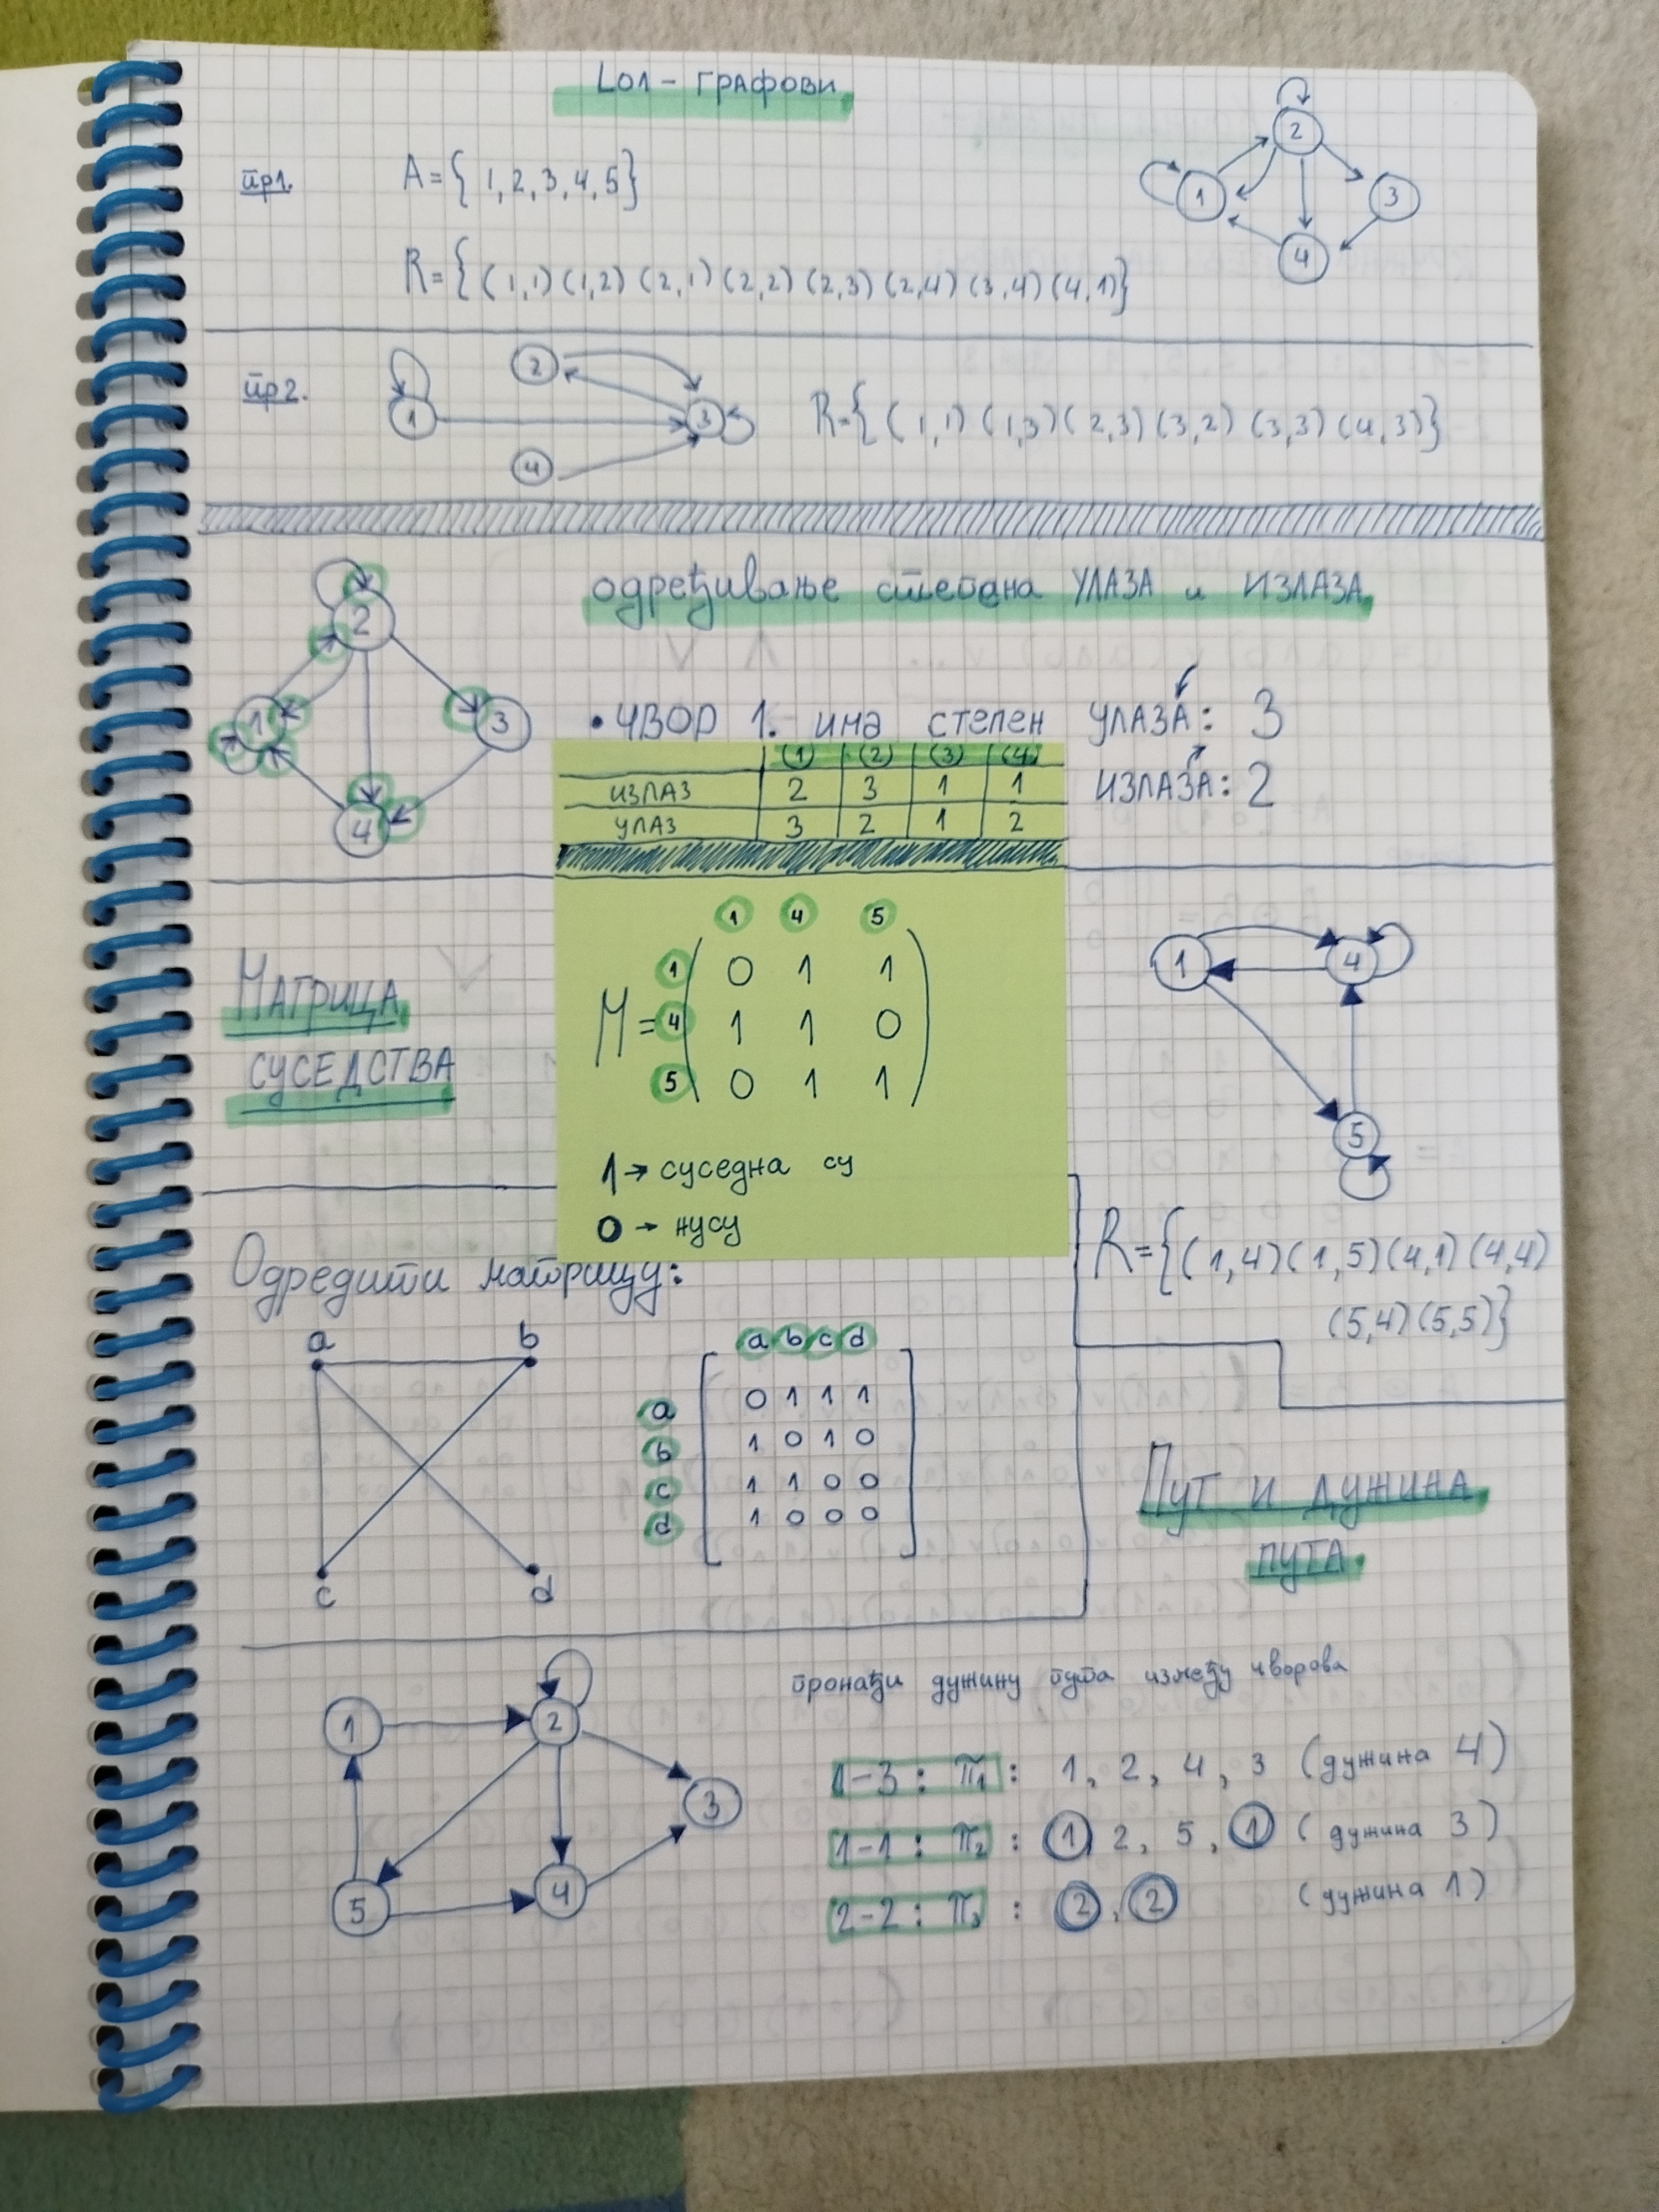 L01 - ГРАФОВИ
пр1.
A={ 1, 2, 3, 4, 5}
R={ (1,1) (1,2) (2,1) (2,2) (2,3) (2,4) (3,4) (4,1)}
2
1
3
4
пр2.
2
1
3
4
R={ (1,1) (1,3) (2,3) (3,2) (3,3) (4,3)}
одређивање степена УЛАЗА и ИЗЛАЗА
2
1
3
4
• ЧВОР 1. има степен УЛАЗА: 3
ИЗЛАЗА: 2
(1) (2) (3) (4)
ИЗЛАЗ 2 3 1 1
УЛАЗ 3 2 1 2
МАТРИЦА
СУСЕДСТВА
1 4 5
1 0 1 1
M= 4 1 1 0
5 0 1 1
1 → суседна су
0 → нису
1
4
5
R={(1,4)(1,5)(4,1)(4,4)
(5,4)(5,5)}
Одредити матрицу:
a b
c d
a b c d
a 0 1 1 1
b 1 0 1 0
c 1 1 0 0
d 1 0 0 0
ПУТ И ДУЖИНА
ПУТА
1
2
3
5
4
пронађи дужину пута између чворова
1-3 : π1 : 1, 2, 4, 3 (дужина 4)
1-1 : π2 : 1, 2, 5, 1 (дужина 3)
2-2 : π3 : 2, 2 (дужина 1)